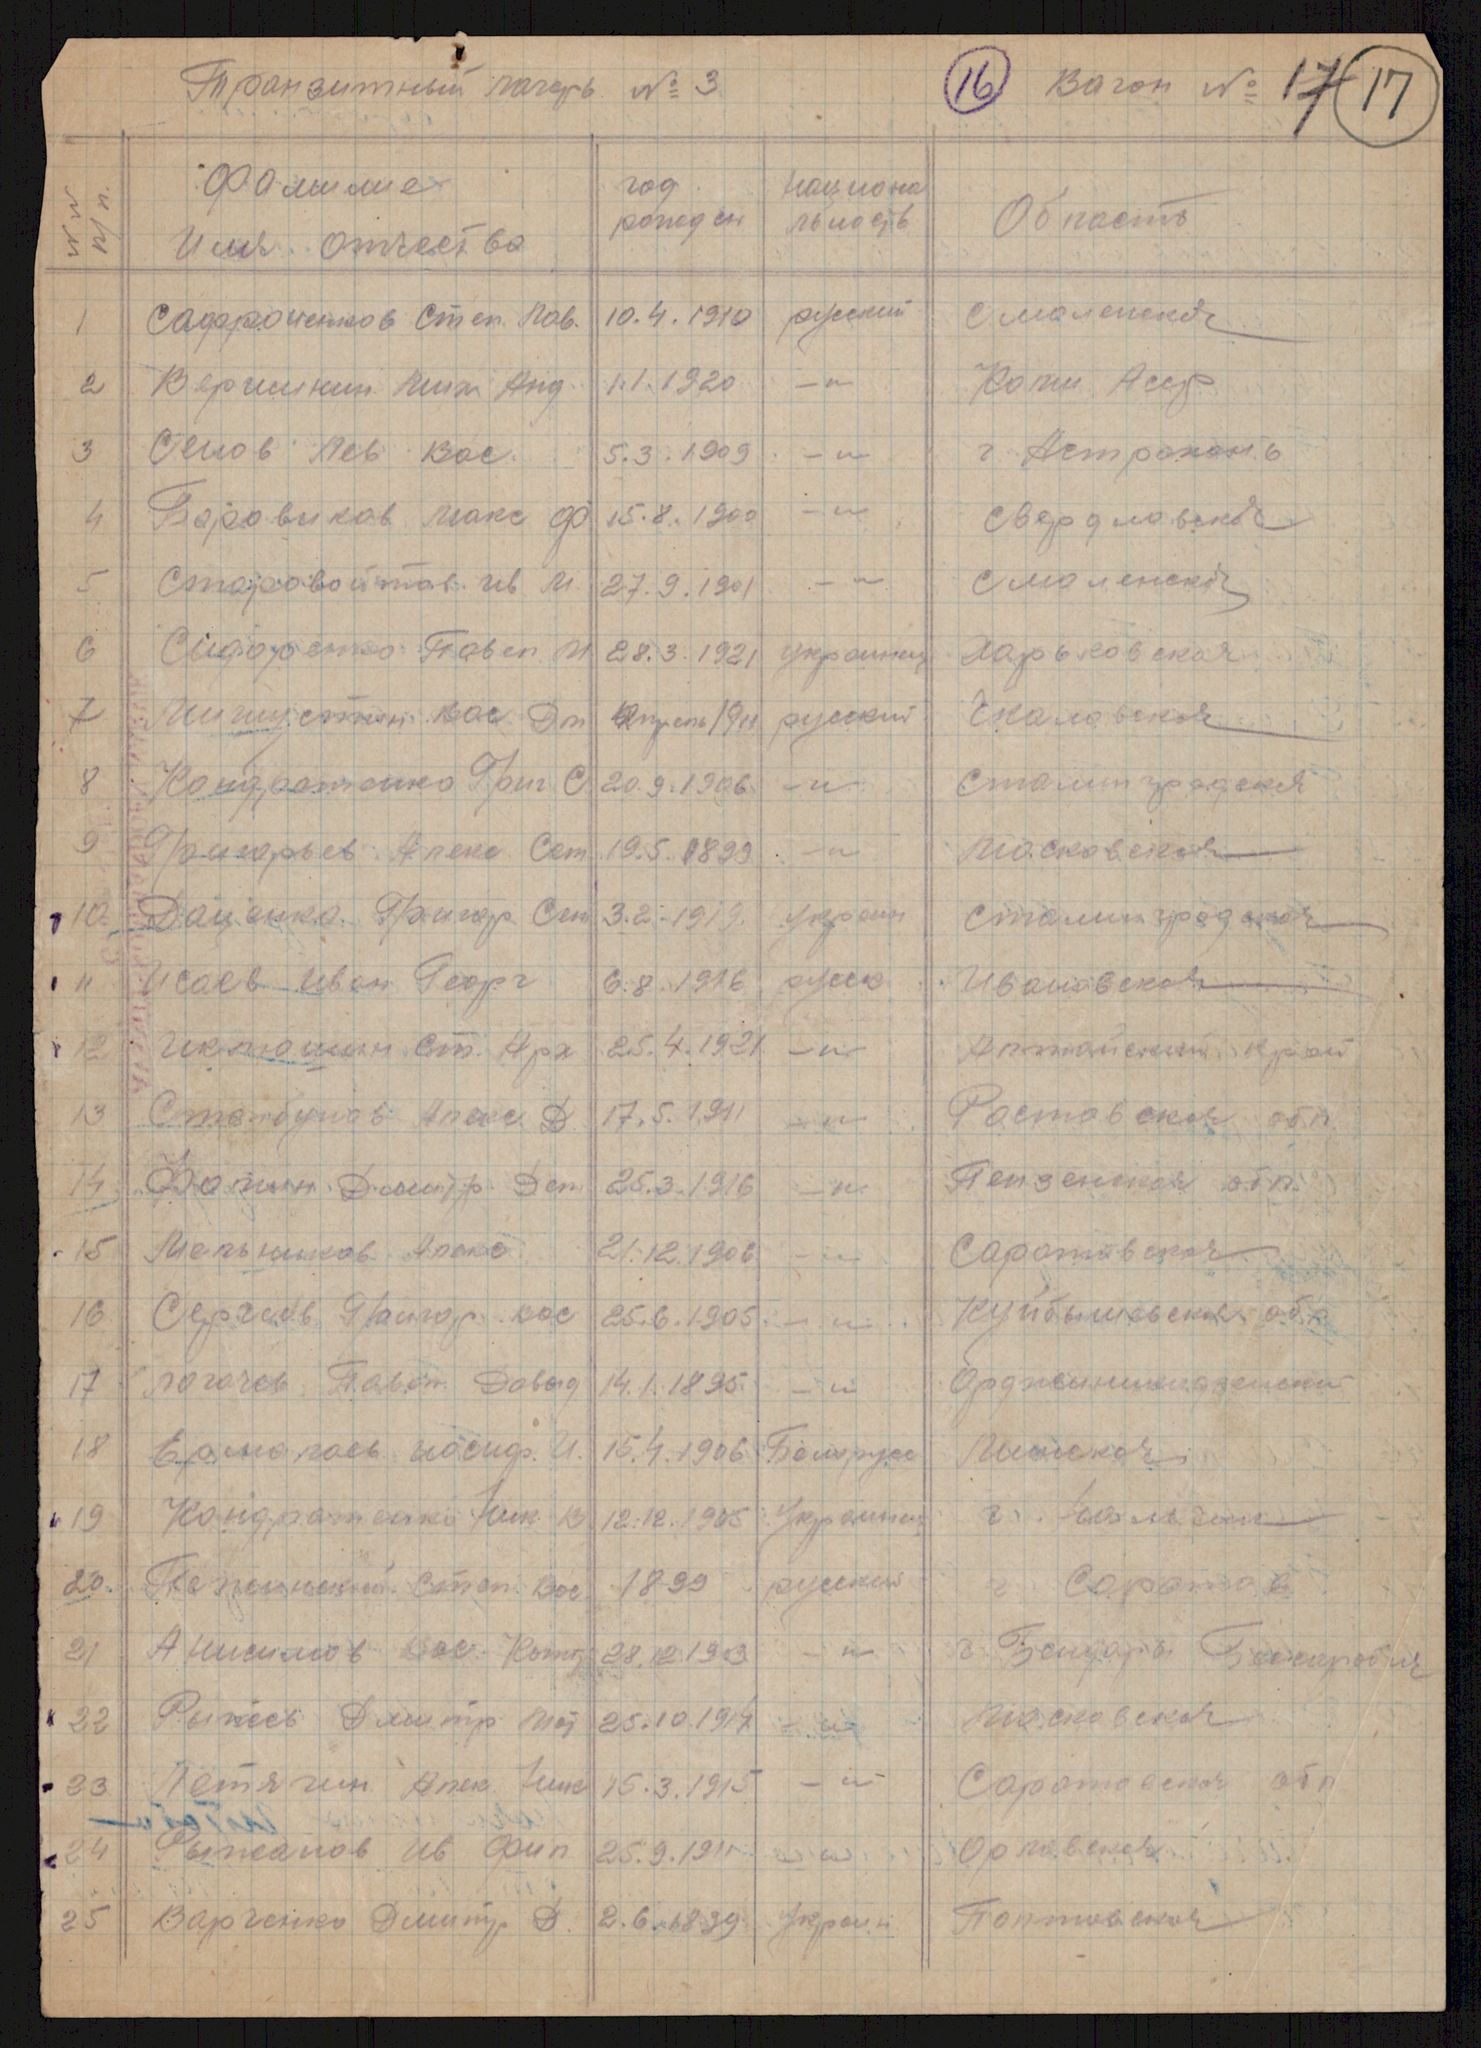 Транзитный лагерь № 3 16 Вагон № 17 17
№ № п/п Фамилие Имя Отчество год рожден национальность Область
1 Сафроненков Степ. Пав. 10.4.1910 русский Смоленская
2 Вершинин Мих Анд 1.1.1920 -"- Коми Асср
3 Лев Вас. 5.3.1909 -"- г. Астрахань
4 Боровиков Макс Ф 15.8.1900 -"- Свердловская
5 Старовойтов Ив И 27.9.1901 -"- Смоленская
6 Сидоренко Павел И 28.3.1921 украинец Харьковская
7 Мишустин Вас Дм Апрель 1911 русский Чкаловская
8 Кондратенко Григ С 20.9.1906 -"- Сталинградская
9 Григорьев Алекс Сем 19.5.1899 -"- Московская
10 Даценко Григор Сем 3.2.1919 украин Сталинградская
11 Исаев Иван Георг 6.8.1916 русск Ивановская
12 Ст. Арх 25.4.1921 -"- Алтайский край
13 Стамбулов Алекс Д 17.5.1911 -"- Ростовская обл.
14 Фомин Дмитр Дем 25.3.1916 -"- Пензенская обл.
15 Мельников Алекс 21.12.1906 -"- Саратовская
16 Сергеев Григор Вас 25.6.1905 -"- Куйбышевская обл
17 Логачев Павел Давыд 14.1.1895 -"- Орджоникидзенский
18 Иосиф. И. 15.4.1906 Белорусс Минская
19 Кондратенко Ник В 12.12.1905 Украинец г. Нальчик
20. Степ. Вас. 1899 русский г. Саратов
21 Анисимов Вас. 28.12.1903 -"- г. Бендеры Бессарабия
22 Рыжов Дмитр 25.10.1914 -"- Московская
23 Летягин Алек Ник 15.3.1915 -"- Саратовская обл
24 Рыжанов Ив Фил 25.9.1911 -"- Орловская
25 Варченко Дмитр Д. 2.6.1899 Украин Полтовская